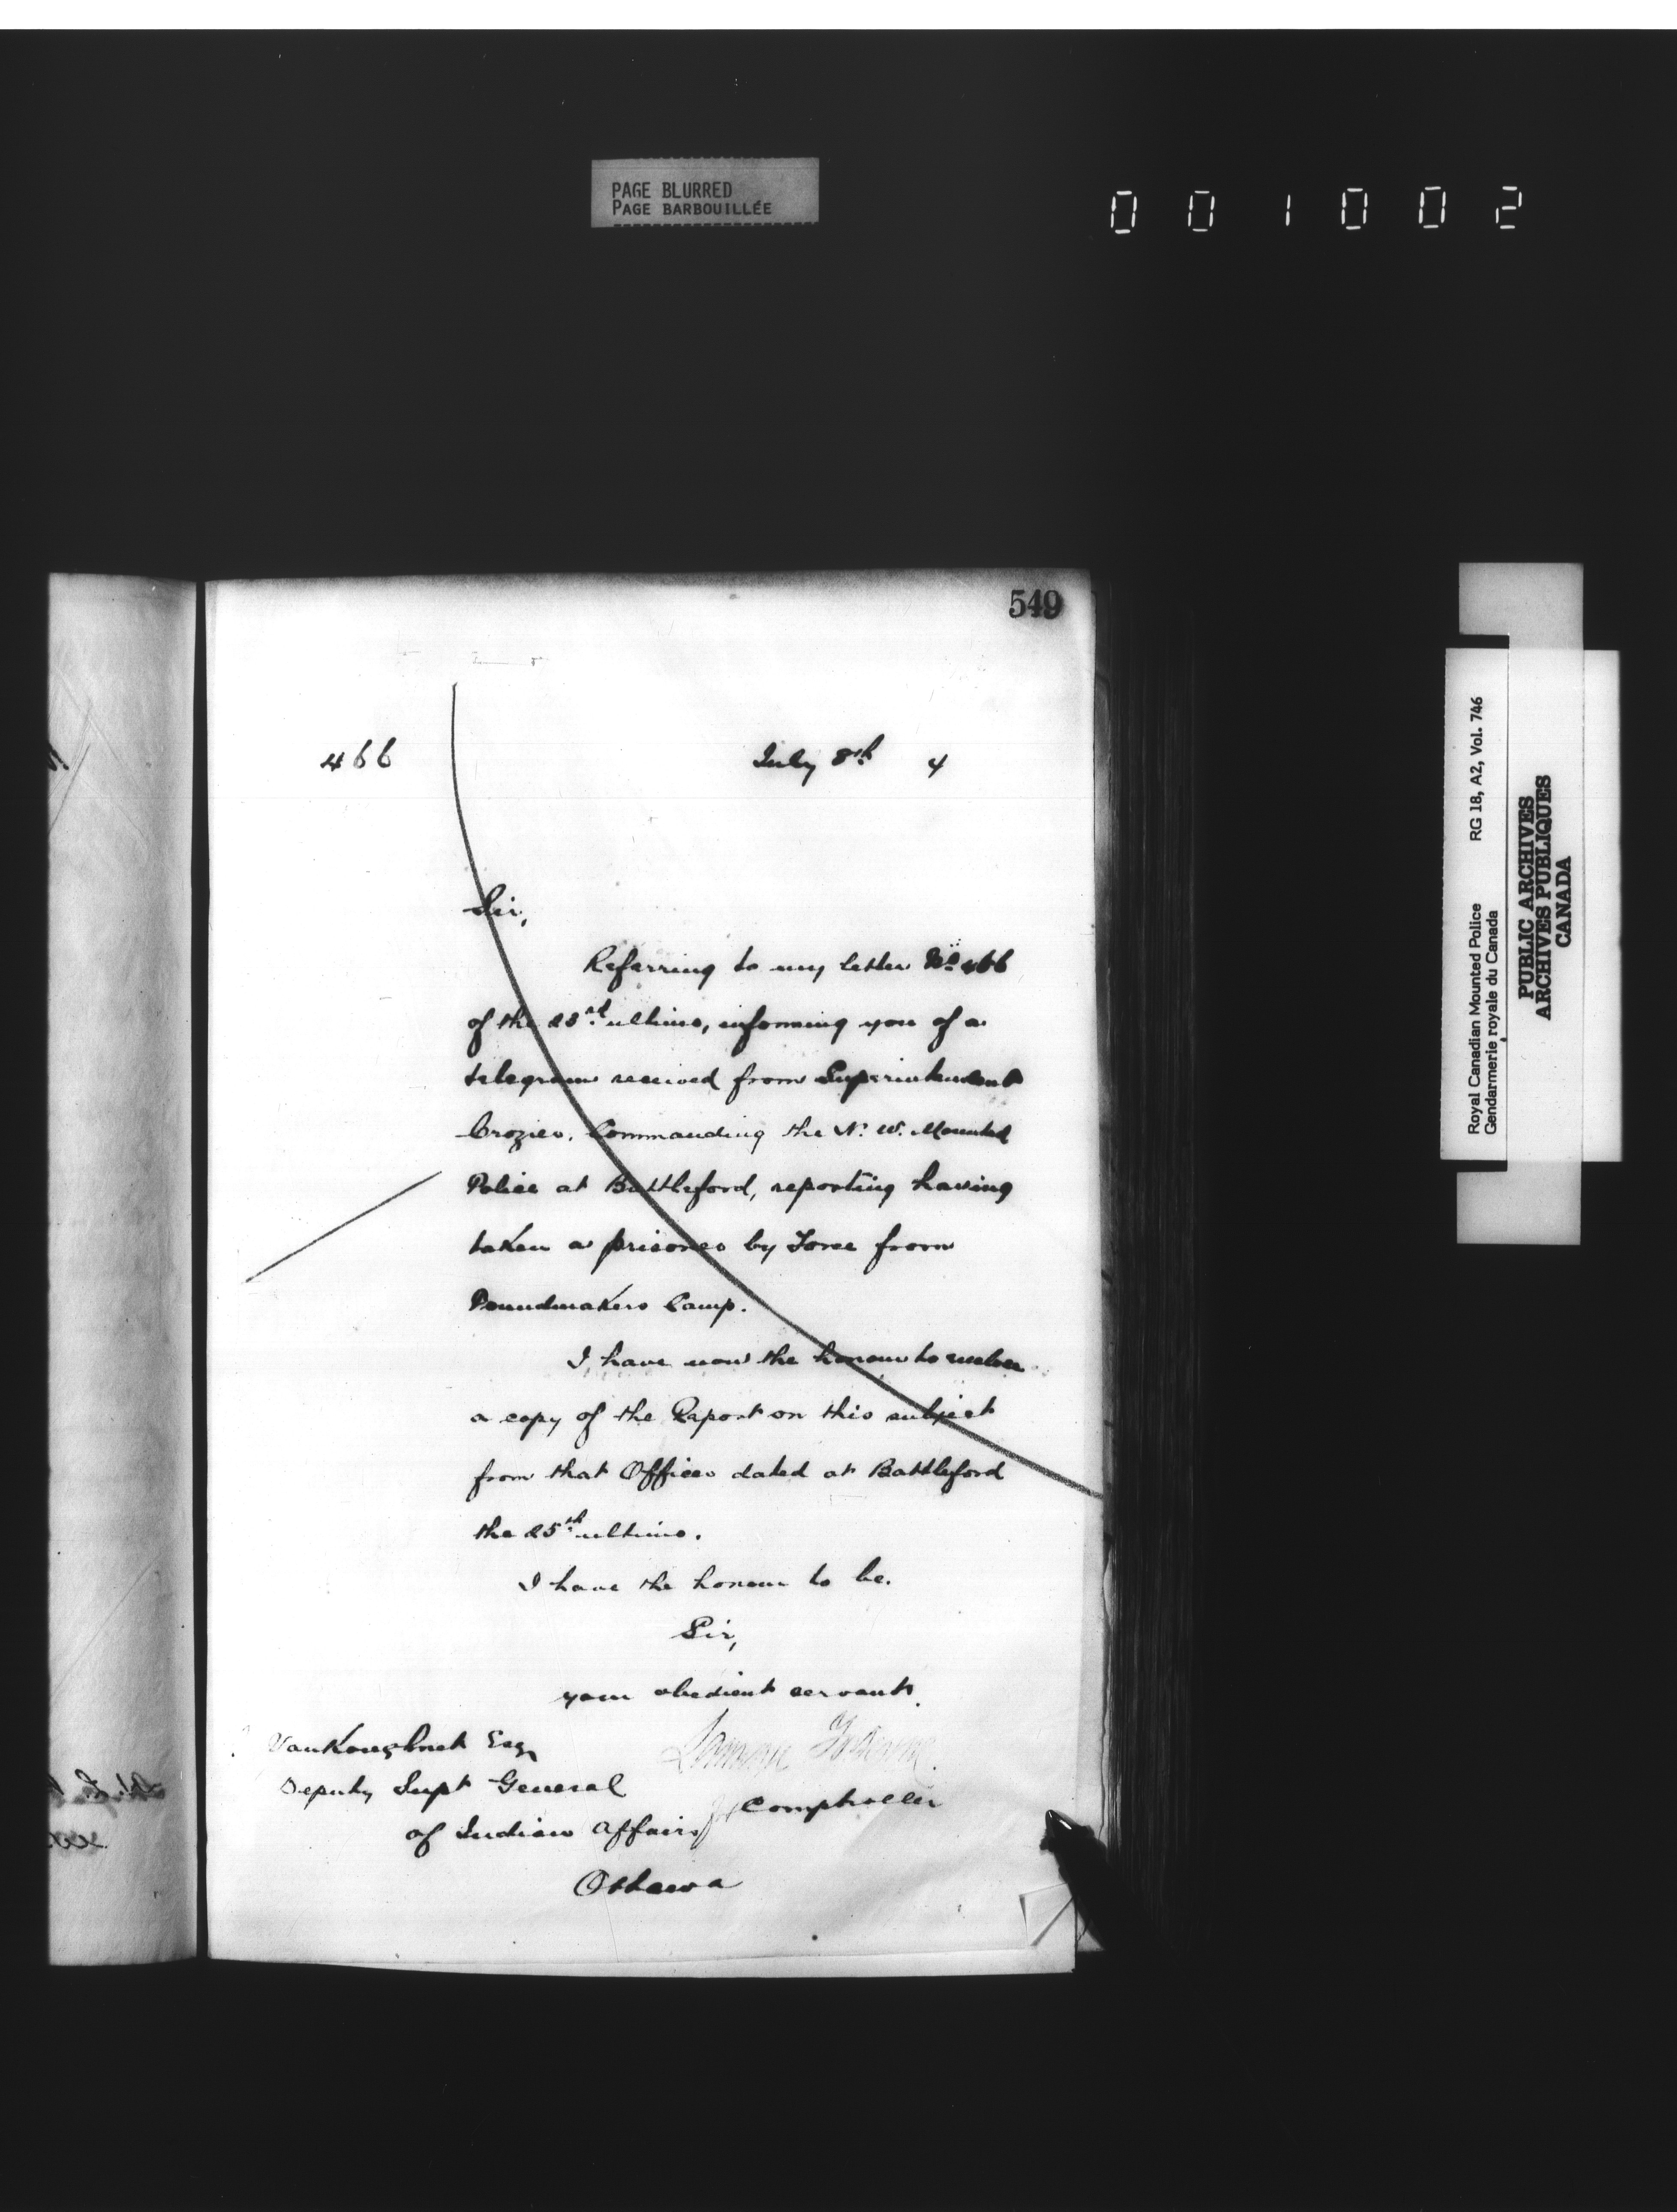 PAGE BLURRED
PAGE BARBOUILLÉE
001002
549
466 July 8th 4
Sir,
Referring to my letter No 466
of the 23rd ultimo, informing you of a
telegram received from Superintendent
Crozier, Commanding the N. W. Mounted
Police at Battleford, reporting having
taken a prisoner by Force from
Poundmakers Camp.
I have now the honour to enclose
a copy of the Report on this subject
from that Officer dated at Battleford
the 25th ultimo.
I have the honour to be.
Sir,
your obedient servant.
VanKoughnet Esq
Deputy Supt General
Comptroller
of Indian Affairs
Ottawa
Royal Canadian Mounted Police RG 18, A2, Vol. 746
Gendarmerie royale du Canada
PUBLIC ARCHIVES
ARCHIVES PUBLIQUES
CANADA